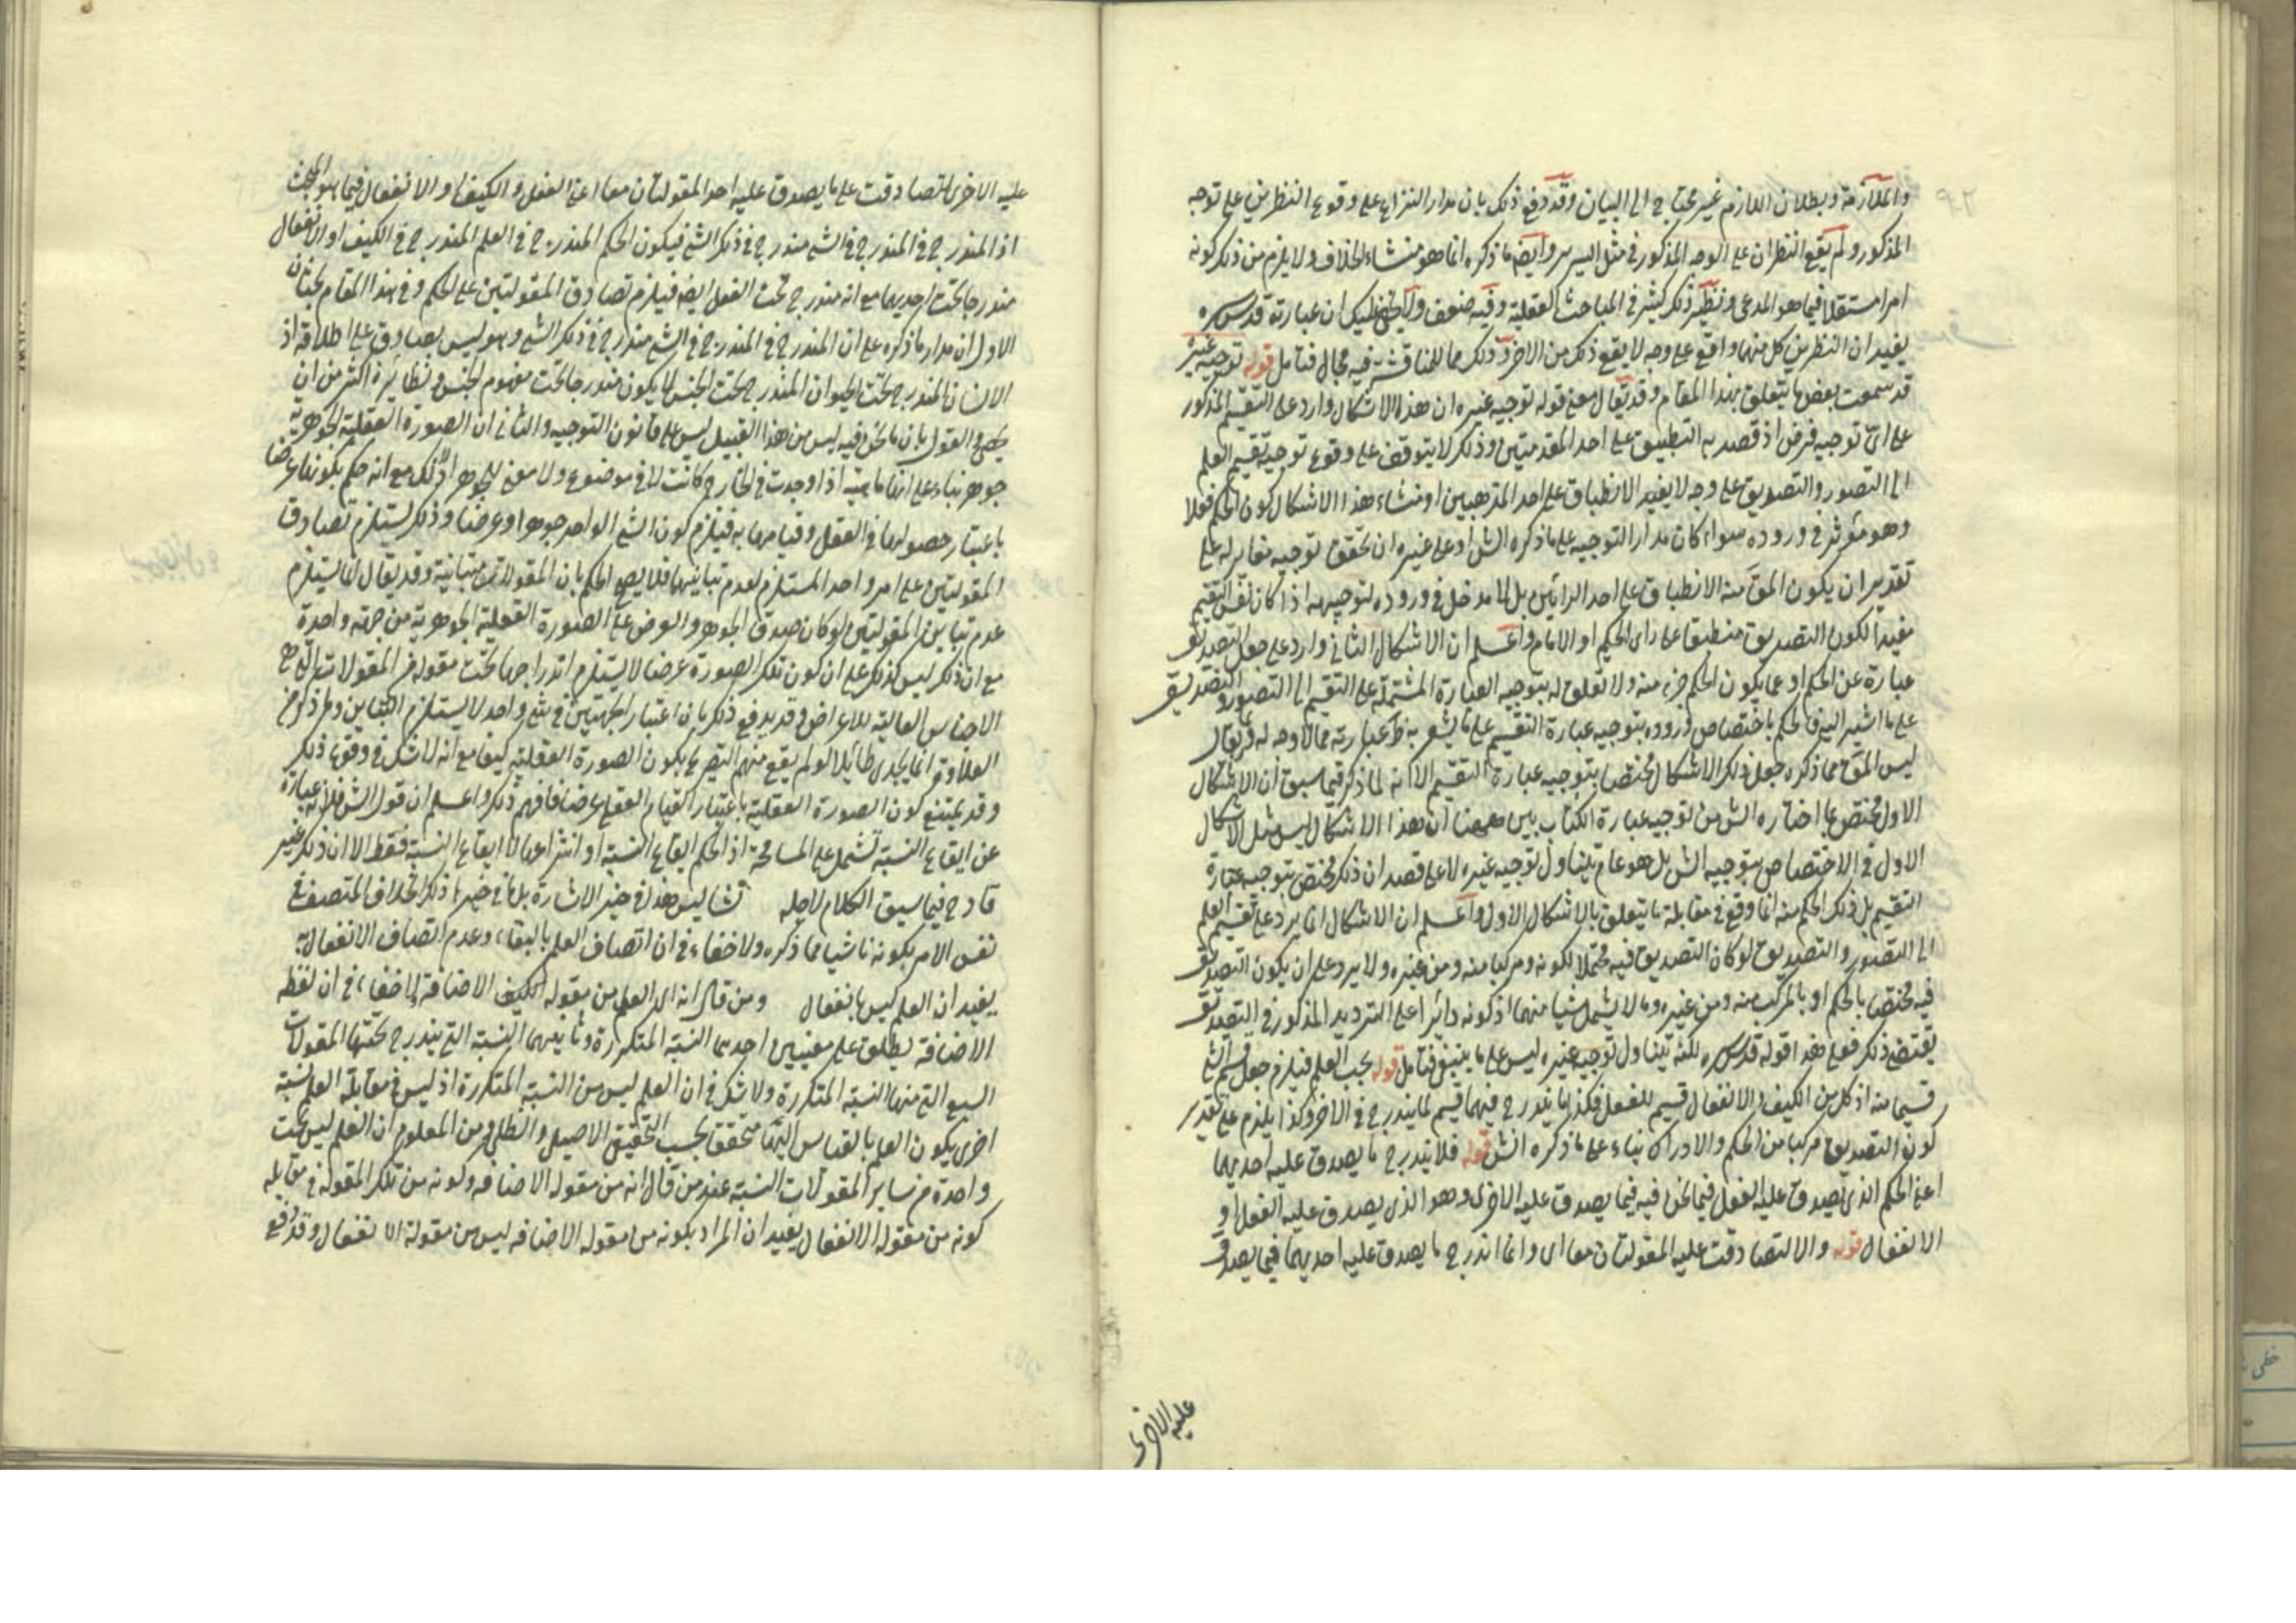 والملازمة وبطلان اللازم غير محتاج الى البيان وقد دفع ذلك بان مدار النزاع على وقوع النظرين على توجه
المذكور ولم يقع النظران على الوجه المذكور فى مثل السرير وايضا ما ذكره انما هو منشاء الخلاف ولا يلزم من ذلك كونه
امرا مستقلا فيما هو المدعى ونظير ذلك كثير فى المباحث العقلية وفيه ضعف ولا يخفى عليك ان عبارته قدس سره
يفيد ان النظرين كل منهما واقع على وجه لا يقع ذلك من الاخر وذلك مما للمناقشة فيه مجال فتامل قوله توجيه غيره
قد سمعت بعض ما يتعلق بهذا المقام وقد يقال معنى قوله توجيه غيره ان هذا الاشكال وارد على التقسيم المذكور
على اى توجيه فرض اذ قصد به التطبيق على احد المقدمتين وذلك لا يتوقف على وقوع توجيه تقسيم العلم
الى التصور والتصديق على وجه لا يفيد الانطباق على احد المذهبين او منشاء هذا الاشكال كون الحكم فعلا
وهو مؤثر فى وروده سواء كان مدار التوجيه على ما ذكره الش او على غيره ان تحقق توجيه مغاير له على
تقدير ان يكون المق منه الانطباق على احد الرايين بل لا مدخل فى وروده لتوجيهه اذا كان نفس التقسيم
مفيدا لكون التصديق منطبقا على راى الحكيم او الامام واعلم ان الاشكال الثانى وارد على جعل التصديق
عبارة عن الحكم او عما يكون الحكم جزء منه ولا تعلق له بتوجيه العبارة المشتملة على التقسيم الى التصور والتصديق
على ما اشير اليه فالحكم باختصاص وروده بتوجيه عبارة التقسيم على ما يشعر به ظ عبارته مما لا وجه له فيقال
ليس المق مما ذكره جعل ذلك الاشكال مختصا بتوجيه عبارة التقسيم الا انه لما ذكر فيما سبق ان الاشكال
الاول مختص بما اختاره الش من توجيه عبارة الكتاب بين ههنا ان هذا الاشكال ليس مثل الاشكال
الاول فى الاختصاص بتوجيه الش بل هو عام يتناول توجيه غيره لا على قصد ان ذلك مختص بتوجيه عبارة
التقسيم بل ذلك الحكم منه انما وقع فى مقابلة ما يتعلق بالاشكال الاول واعلم ان الاشكال انما يرد على تقسيم العلم
الى التصور والتصديق لو كان التصديق فيه محتملا لكونه ومركبا منه ومن غيره ولا يرد على ان يكون التصديق
فيه مختصا بالحكم او بالمركب منه ومن غيره وما لا يشمل شيا منهما اذ كونه دائرا على الترديد المذكور فى التصديق
يقتضى ذلك فعلى هذا قوله قدس سره لكنه يتناول توجيه غيره ليس على ما ينبغى فتامل قوله يجب العلم فيلزم جعل قسم الشئ
قسيما منه اذ كل من الكيف والانفعال قسيم للفعل فكذا ما يندرج فيهما قسيم لما يندرج فى الاخر وكذا يلزم على تقدير
كون التصديق مركبا من الحكم والادراك بناء على ما ذكره الش قوله فلا يندرج ما يصدق عليه احديهما
اعنى الحكم الذى يصدق عليه الفعل فيما نحن فيه فيما يصدق عليه الاخرى وهو الذى يصدق عليه الفعل او
الانفعال قوله والا لتصادقت عليه المقولتان معا اى وانما اندرج ما يصدق عليه احديهما فيما يصدق
عليه الاخرى
عليه الاخرى لتصادقت على ما يصدق عليه احد المقولتان معا اعنى الفعل والكيف او الانفعال فيما هو المبحث
اذ المندرج فى المندرج فى الشئ مندرج فى ذلك الشئ فيكون الحكم المندرج فى العلم المندرج فى الكيف او الانفعال
مندرجا تحت احديهما مع انه مندرج تحت الفعل ايضا فيلزم تصادق المقولتين على الحكم وفى هذا المقام بحثان
الاول ان مدار ما ذكره على ان المندرج فى المندرج فى الشئ مندرج فى ذلك الشئ وهو ليس بصادق على اطلاقه اذ
الانسان المندرج تحت الحيوان المندرج تحت الجنس لا يكون مندرجا تحت مفهوم الجنس ونظائره اكثر من ان
يحصى والقول بان ما نحن فيه ليس من هذا القبيل ليس على قانون التوجيه والثانى ان الصورة العقلية الجوهرية
جوهر بناء على انها ماهية اذا وجدت فى الخارج كانت لا فى موضوع ولا معنى للجوهر الا ذلك مع انه حكم بكونها عرضا
باعتبار حصولها فى العقل وقيامها به فيلزم كون الشئ الواحد جوهرا وعرضا وذلك يستلزم تصادق
المقولتين على امر واحد المستلزم لعدم تباينهما فلا يصح الحكم بان المقولات متباينة وقد يقال انما يستلزم
عدم تباين المقولتين لو كان صدق الجوهر والعرض على الصورة العقلية الجوهرية من جهة واحدة
مع ان ذلك ليس كذلك على ان كون تلك الصورة عرضا لا يستلزم اندراجها تحت مقولة من المقولات التى هى
الاجناس العالية للاعراض وقد يدفع ذلك بان اعتبار الجهتين فى شئ واحد لا يستلزم التباين وما ذكر من
العلاوة انما يجدى طائلا لو لم يقع منهم التصريح بكون الصورة العقلية كيفا مع انه لا شك فى وقوع ذلك
وقد يمتنع كون الصورة العقلية باعتبار القيام العقلى عرضا فافهم ذلك واعلم ان قول الش فلانه عبارة
عن ايقاع النسبة تشتمل على المسامحة اذ الحكم ايقاع النسبة او انتزاعها لا ايقاع النسبة فقط الا ان ذلك غير
قادح فيما سيق الكلام لاجله تشا ليس هذا فى حيز الاشارة بل فى حيز ما ذكر الخلاف المتصف فى
نفس الامر بكونه ناشيا مما ذكره ولا خفاء فى ان اتصاف العلم بالبقاء وعدم اتصاف الانفعال به
يفيد ان العلم ليس بانفعال ومن قال انه اى العلم من مقولة الكيف الاضافة لا خفاء فى ان لفظ
الاضافة يطلق على معنيين احدهما النسبة المتكررة وثانيهما النسبة التى يندرج تحتها المقولات
السبع التى منها النسبة المتكررة ولا شك فى ان العلم ليس من النسبة المتكررة اذ ليس فى مقابلة العلم نسبة
اخرى يكون العلم بالقياس اليها متحقق بحسب التحقيق الاصيل والظلى ومن المعلوم ان العلم ليس تحت
واحدة من ساير المقولات النسبية عند من قال انه من مقولة الاضافة وكونه من تلك المقولة فى مقابله
كونه من مقولة الانفعال يفيد ان المراد بكونه من مقولة الاضافة ليس من مقولة الانفعال وقد دفع